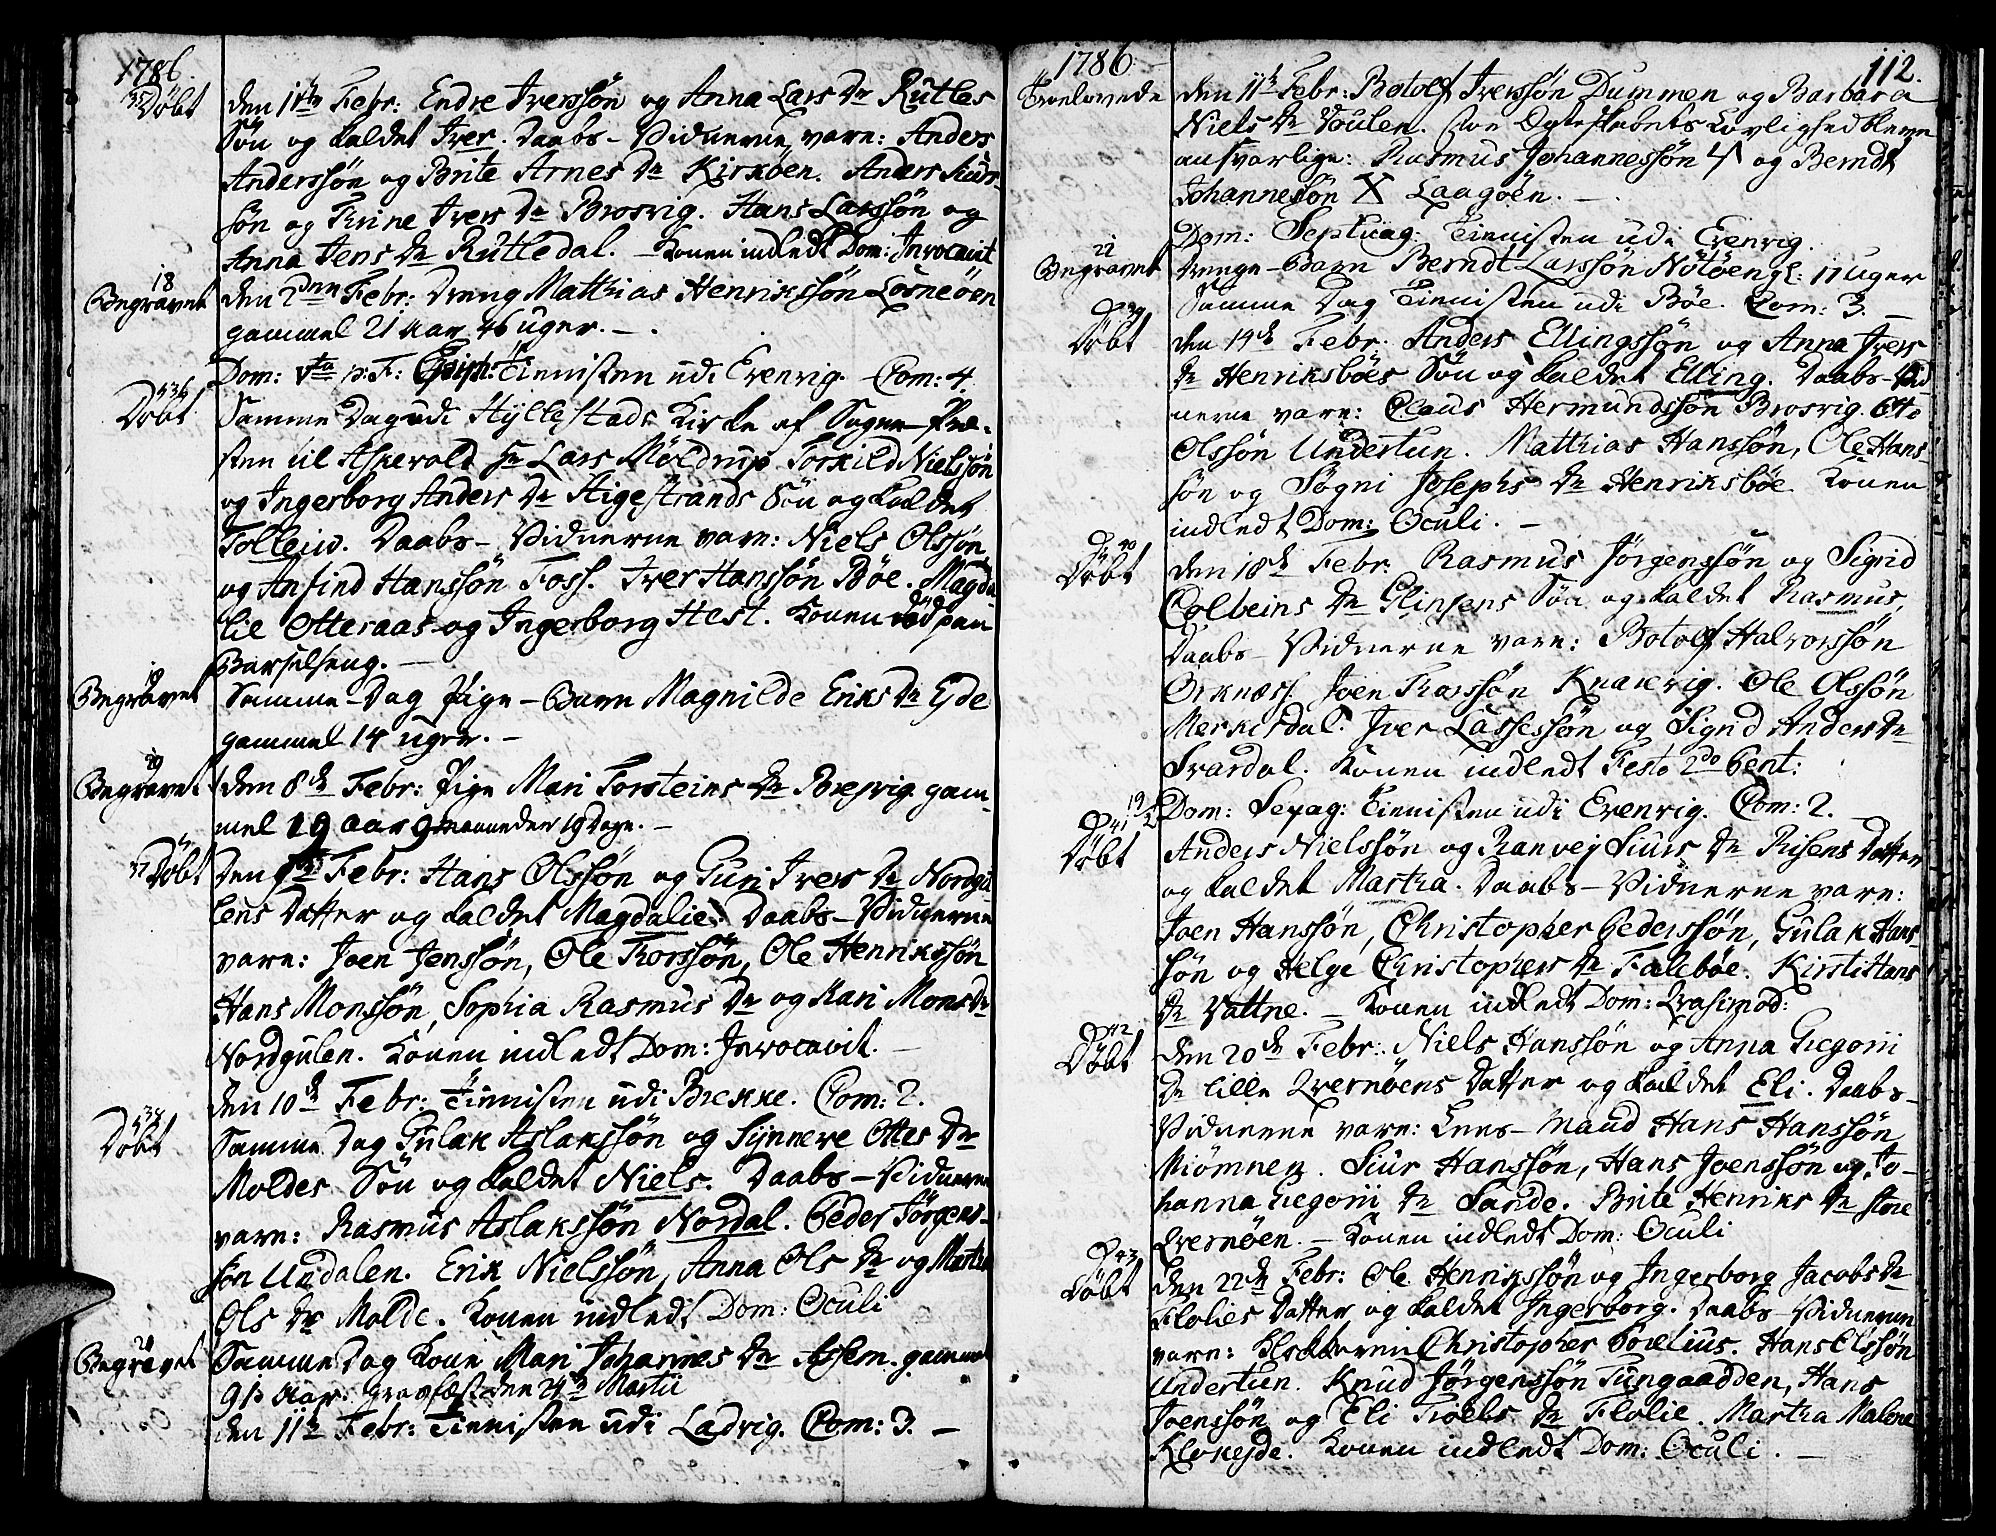 1786.
35 Døbt den 11te Febr: Endre Iverssøn og Anna Lars Dr Rutles
Søn og kaldet Iver. Daabs-Vidnerne vare: Anders
Anderssøn og Brite Arnes Dr Kirkøen. Anders
søn og Trine Ivers Dr Brosvig. Hans Larssøn og
Anna Jens Dr Rutledal. – Konen indledt Dom: Invocavit
18 Begravet den 2den Febr: Dreng Matthias Henrikssøn Losneøen
gammel 21 Aar 46 uger. –
Dom: Vta p: F: Epiph: Tienisten udi Evenvig. Com: 4.
36 Døbt Samme Dag udi Hyllestads Kirke af Sogne-Præ-
sten til Askevold Hr Lars Møldrup Torkild Nielssøn
og Ingerborg Anders Dr Aigestrands Søn og kaldet
Tolleiv. Daabs-Vidnerne vare: Niels Olssøn
og Anfind Hanssøn Foss. Iver Hanssøn Bøe. Magda-
lie Otteraas og Ingerborg Hest. Konen død paa
Barselseng. –
19 Begravet Samme Dag Pige-Barn Magnilde Eriks Dr Eyde
gammel 14 uger. –
20 Begravet den 8de Febr: Pige Mari Torsteins Dr Brejvig gam-
mel 19 aar 9 Maaneder 19 Dage. –
37 Døbt Den Febr: Hans Olssøn og Guri Ivers Dr Nordgu-
lens Datter og kaldet Magdalie. Daabs-Vidnerne
vare: Joen Jenssøn, Ole Thorssøn, Ole Henrikssøn
Hans Monssøn, Sophia Rasmus Dr og Kari Mons Dr
Nordgulen. Konen indledt Dom: Invocavit. –
den 10de Febr: Tienisten udi Brekke. Com: 2.
38 Døbt Samme Dag Gulak Aslakssøn og Synneve Ottes Dr
Moldes Søn og kaldet Niels. Daabs-Vidnerne
vare: Rasmus Aslakssøn Nordal. Peder Jørgens-
søn Undalen. Erik Nielssøn, Anna Ols Dr og Martha
Ols Dr Molde. Konen indledt Dom: Oculi
Begravet Samme Dag Kone Mari Johannes Dr Assem. gammel
91½ Aar. gravfæst den 24de Martii
den 11te Febr: Tienisten udi Ladvig. Com: 3. –
1786. 112.
Troelovede den 11te Febr: Botolf Iverssøn Dummen og Barbara
Niels Dr Voulen. for Ægteskabets Lovlighed bleve
ansvarlige: Rasmus Johannessøn og Berndt
Johannessøn X Laagøen. –
Dom: Septuag: Tienisten udi Evenvig.
21 Begravet Drenge-Barn Berndt Larssøn Nøtøeng: 17 uger
Samme Dag Tienisten udi Bøe. Com: 3. –
39 Døbt den 14de Febr. Anders Ellingssøn og Anna Ivers
Dr Henriksbøes Søn og kaldet Elling. Daabs-Vid
nerne vare: Claus Hermundssøn Brosvig. Otto
Olssøn Undertun. Matthias Hanssøn, Ole Hans-
søn og Søgni Josephs Dr Henriksbøe. Konen
indledt Dom: Oculi. –
40 Døbt den 18de Febr: Rasmus Jørgenssøn og Sigrid
Colbeins Dr Glinsens Søn og kaldet Rasmus.
Daabs-Vidnerne vare: Botolf Halvorssøn
Ørknæss. Joen Thorssøn Knarrvig. Ole Olssøn
Merkisdal. Iver Lassessøn og Sigrid Anders Dr
Svardal. Konen indledt Festo 2do Pent:
Dom: Sexag: Tienisten udi Evenvig. Com: 2.
41 Døbt Anders Nielssøn og Ranvej Siurs Dr Risens Datter
og kaldet Martha. Daabs-Vidnerne vare:
Joen Hanssøn, Christopher Pederssøn, Gulak Hans-
søn og Helge Christophers Dr Falebøe. Kirsti Hans
Dr Vattne. – Konen indledt Dom: Qvasimod:
42 Døbt den 20de Febr: Niels Hanssøn og Anna Gregorii
Dr lille Qvernøens Datter og kaldet Eli. Daabs-
Vidnerne vare: Lens-Mand Hans Hanssøn
Miømnen. Siur Hanssøn, Hans Joenssøn og Jo-
hanna Gregorii Dr Sande. Brite Henriks Dr store
Qvernøen. – Konen indledt Dom: Oculi
43 Døbt den 22de Febr: Ole Henrikssøn og Ingerborg Jacobs Dr
Flolies Datter og kaldet Ingerborg. Daabs-Vidnerne
vare: Klokkeren Christopher Povelius. Hans Olssøn
Undertun. Knud Jørgenssøn Tungaadden, Hans
Joenssøn og Eli Troels Dr Flolie. Martha Malene
Klokejde. Konen indledt Dom: Oculi. –